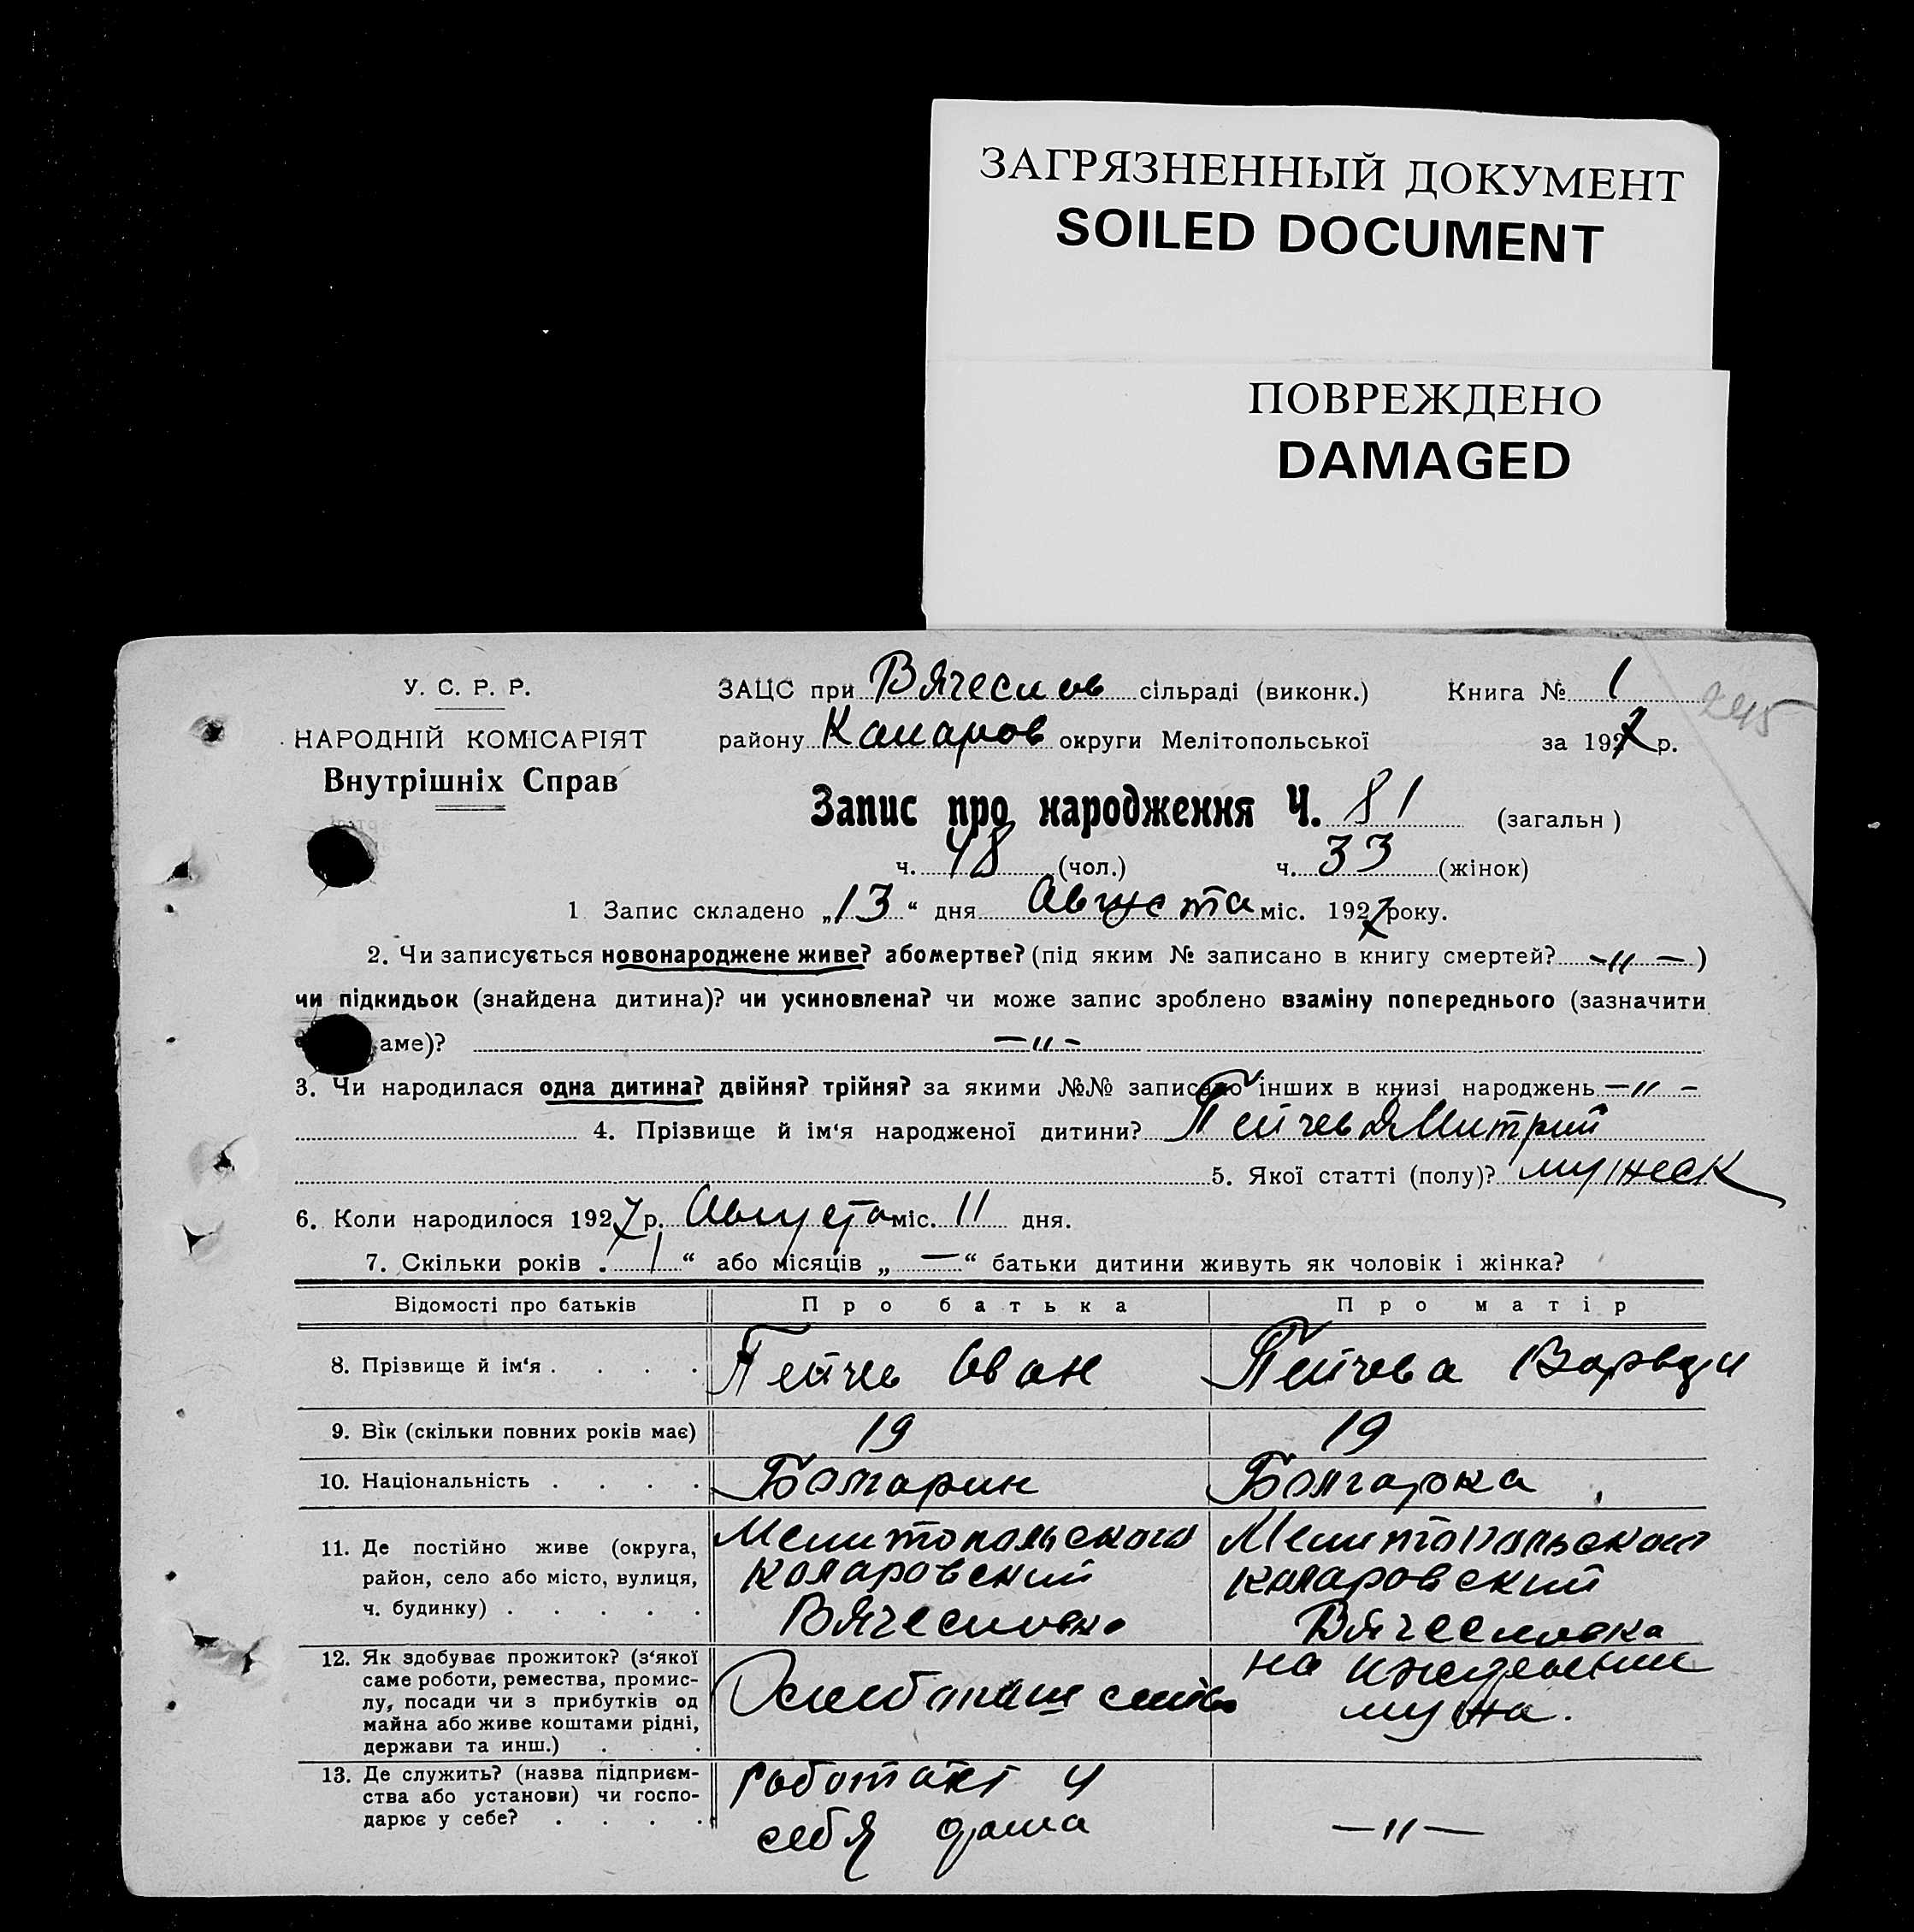 ЗАГРЯЗНЕННЫЙ ДОКУМЕНТ
SOILED DOCUMENT
ПОВРЕЖДЕНО
DAMAGED
У. С. Р. Р.
НАРОДНІЙ КОМІСАРІЯТ
Внутрішніх Справ
ЗАЦС при Вячеслов сільраді (виконк.) Книга № 1
245
району Коларов округи Мелітопольської за 1927 р.
Запис про народження Ч. 81 (загальн)
ч. 48 (чол.) ч. 33 (жінок)
1 Запис складено „13“ дня Августа міс. 1927 року.
2. Чи записується новонароджене живе? або мертве? (під яким № записано в книгу смертей? -„-)
чи підкидьок (знайдена дитина)? чи усиновлена? чи може запис зроблено взаміну попереднього (зазначити
аме)? -„-
3. Чи народилася одна дитина? двійня? трійня? за якими №№ записано інших в книзі народжень -„-
4. Прізвище й ім‘я народженої дитини? Пейчев Дмитрий
5. Якої статті (полу)? мужеск
6. Коли народилося 1927 р. Августа міс. 11 дня.
7. Скільки років „1“ або місяців „—“ батьки дитини живуть як чоловік і жінка?
Відомості про батьків Про батька Про матір
8. Прізвище й ім‘я . . . . Пейчев Иван Пейчева
9. Вік (скільки повних років має) 19 19
10. Національність . . . . Болгарин Болгарка
11. Де постійно живе (округа, район, село або місто, вулиця, ч. будинку) . . . . .
Мелитопольского
Коларовский
Вячесловка
Мелитопольского
Коларовский
Вячесловка
12. Як здобуває прожиток? (з‘якої
саме роботи, ремества, промис-
лу, посади чи з прибутків од
майна або живе коштами рідні,
держави та инш.) . . .
на иждевении
мужа.
13. Де служить? (назва підприєм-
ства або установи) чи госпо-
дарює у себе? . . . .
работает у
себя дома
-„-